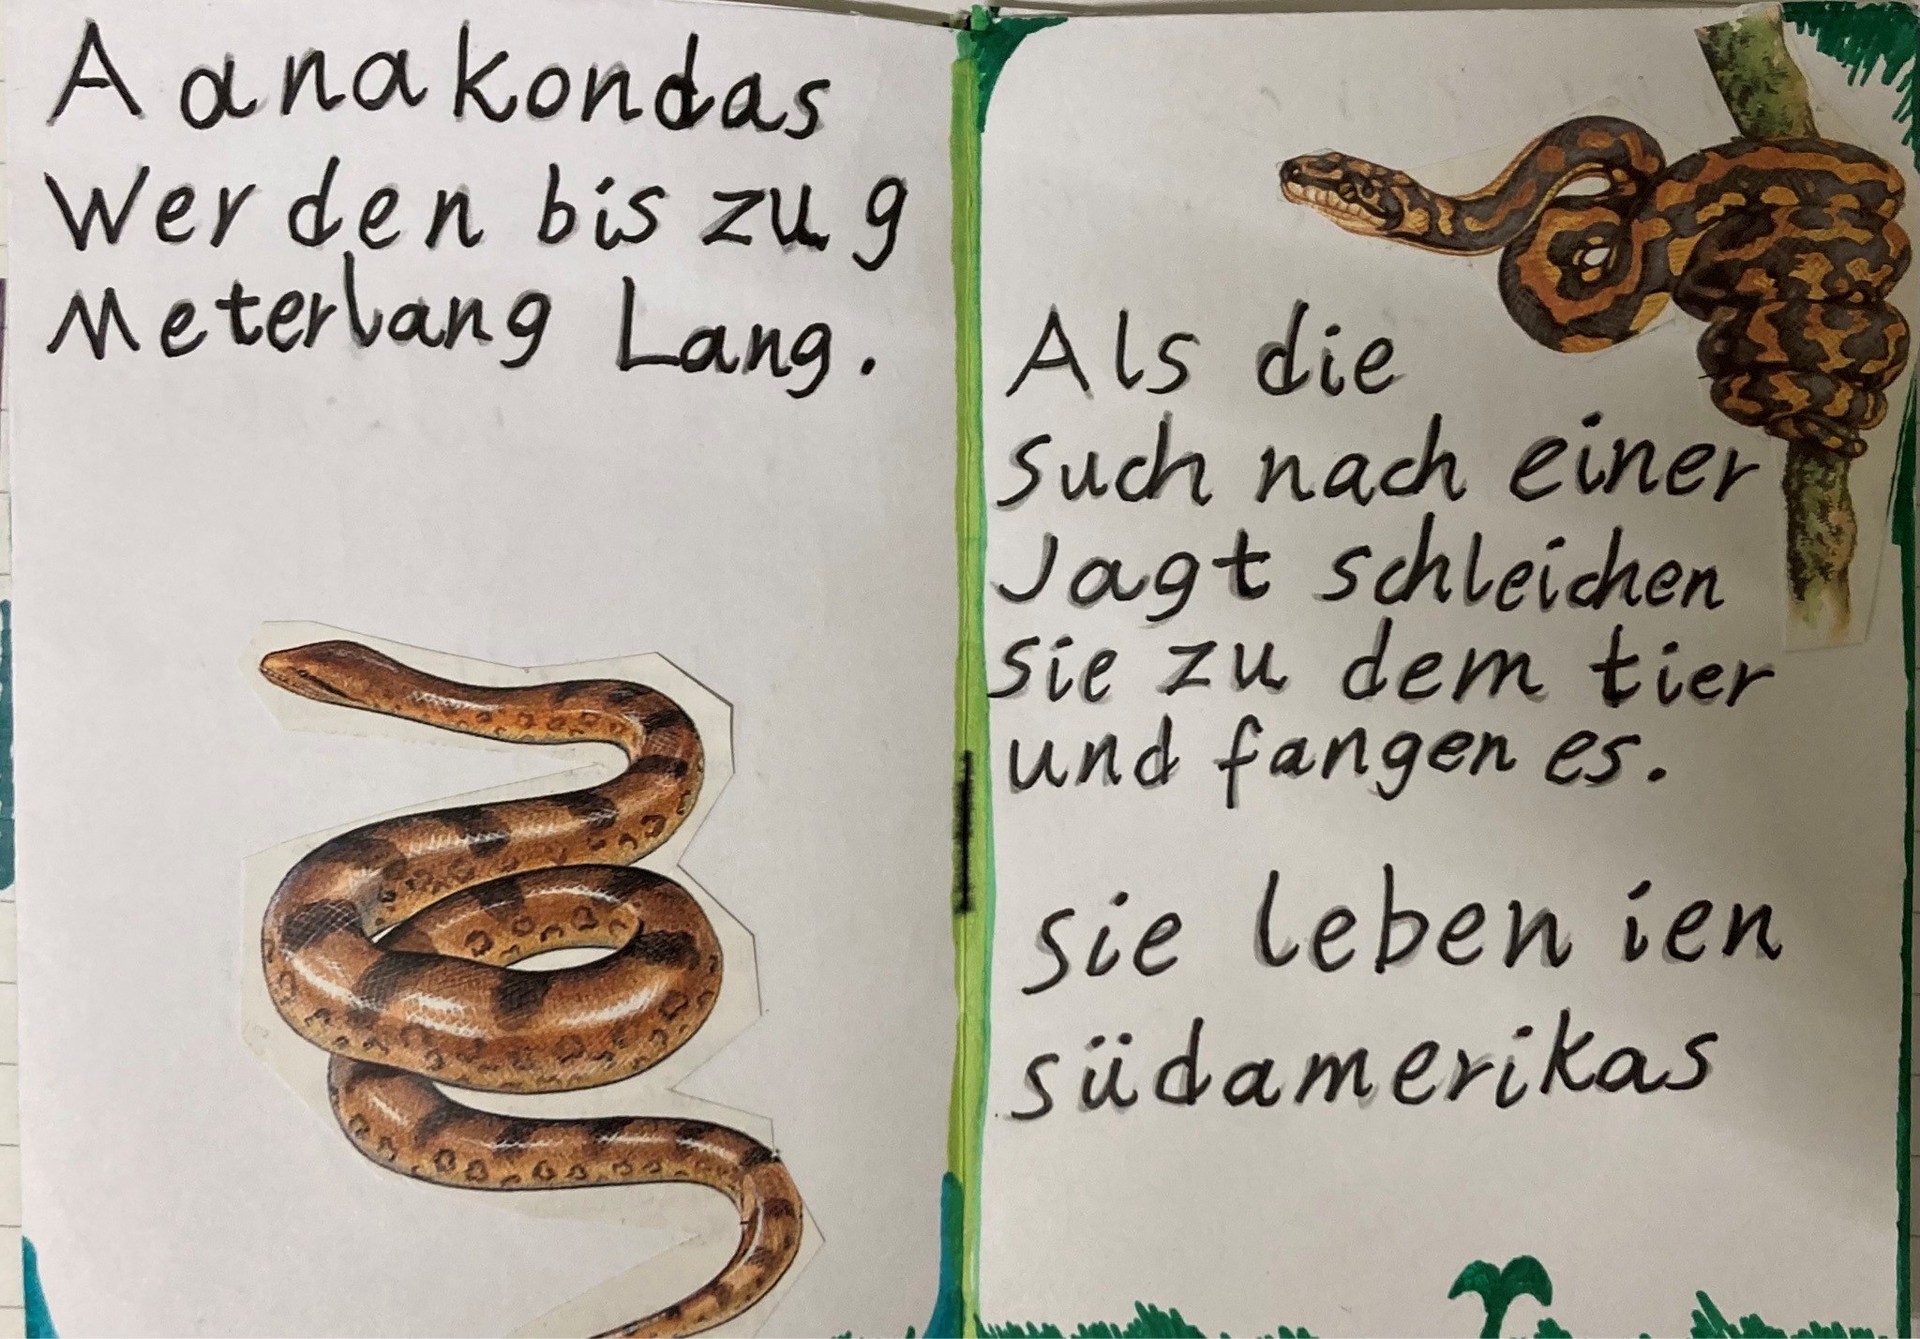 A anakondas
Werden bis zu 9
Meterlang Lang.
Als die
such nach einer
Jagt schleichen
sie zu dem tier
und fangen es.
sie leben ien
südamerikas